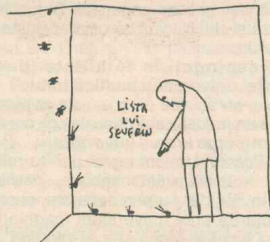 LISTA
LUI
SEVERIN